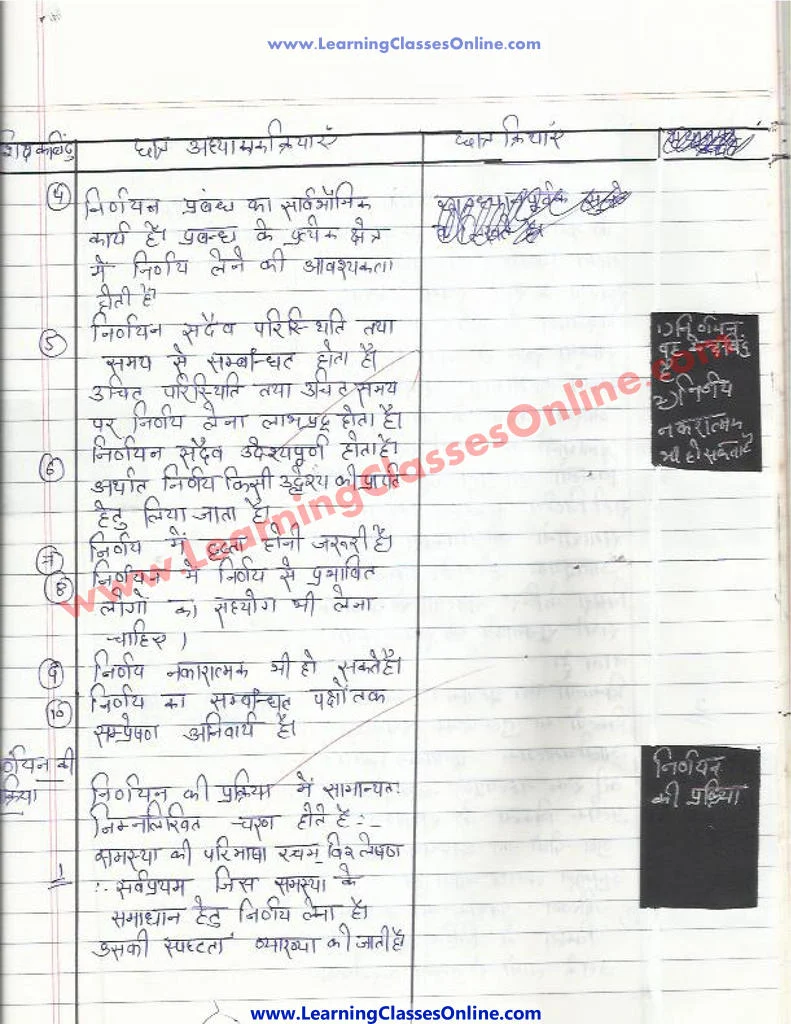 www.LearningClassesOnline.com
छात्र अध्यापक क्रियाएं
छात्र क्रियाएं
4 निर्णयन प्रबंध का सार्वभौमिक
कार्य है। प्रबन्ध के प्रत्येक क्षेत्र
में निर्णय लेने की आवश्यकता
होती है।
5 निर्णयन सदैव परिस्थिति तथा
समय से सम्बन्धित होता है।
उचित परिस्थिति तथा उचित समय
पर निर्णय लेना लाभप्रद होता है।
6 निर्णयन सदैव उद्देश्यपूर्ण होता है।
अर्थात निर्णय किसी उद्देश्य की प्राप्ति
हेतु लिया जाता है।
7 निर्णय में दृढ़ता होनी जरूरी है।
8 निर्णयन में निर्णय से प्रभावित
लोगों का सहयोग भी लेना
चाहिए।
9 निर्णय नकारात्मक भी हो सकते है।
10 निर्णय का सम्बन्धित पक्षों तक
सम्प्रेषण अनिवार्य है।
निर्णयन की प्रक्रिया में सामान्यतः
निम्नलिखित चरण होते है :-
1 समस्या की परिभाषा एवम् विश्लेषण
:- सर्वप्रथम जिस समस्या के
समाधान हेतु निर्णय लेना है।
उसकी स्पष्टता व्याख्या की जाती है।
1) निर्णयन
है
2) निर्णय
नकारात्मक
भी हो सकता है
निर्णयन
की प्रक्रिया
www.LearningClassesOnline.com
www.LearningClassesOnline.com